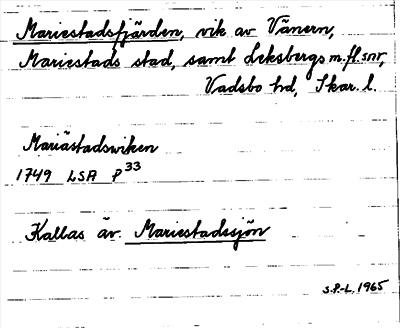 Mariestadsfjärden, vik av Vänern,
Mariestads stad, samt Leksbergs m.fl. snr,
Vadsbo hd, Skar. l.
Mariästadswiken
1749 LSA P 33
Kallas äv. Mariestadssjön
S.P.-L, 1965